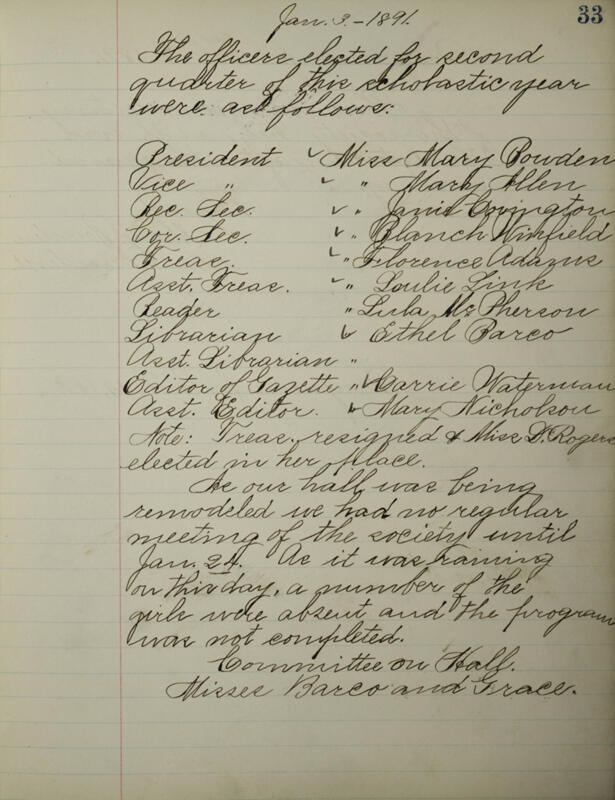 33
Jan. 3. - 1891.
The officers elected for second
quarter of this scholastic year
were as follows:
President ✓ Miss Mary Bowden
Vice " ✓ " Mary Allen
Rec. Sec. ✓ " Janie Covington
Cor. Sec. ✓ " Blanch Winfield
Treas. ✓ " Florence Adams
Asst. Treas. ✓ " Loulie Link
Reader " Lula McPherson
Librarian ✓ " Ethel Barco
Asst. Librarian "
Editor of Gazette " ✓ Carrie Waterman
Asst. Editor. ✓ " Mary Nicholson
Note: Treas. resigned & Miss D. Rogers
elected in her place.
As our hall was being
remodeled we had no regular
meeting of the society until
Jan. 24. As it was raining
on this day, a number of the
girls were absent and the program
was not completed.
Committee on Hall.
Misses Barco and Grace.